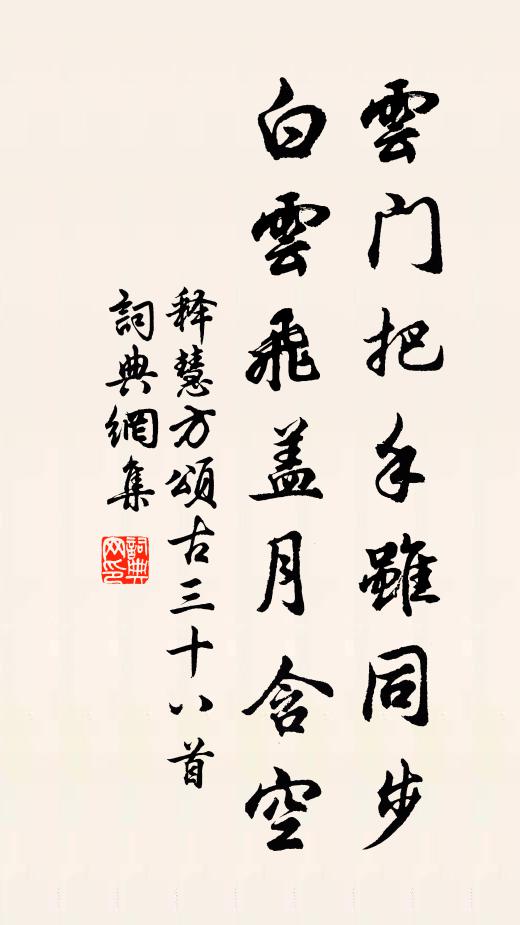 雲门把手雖同步
白雲飛盖月含空
释慧方頌古三十八首
詞典網集
詞典网印